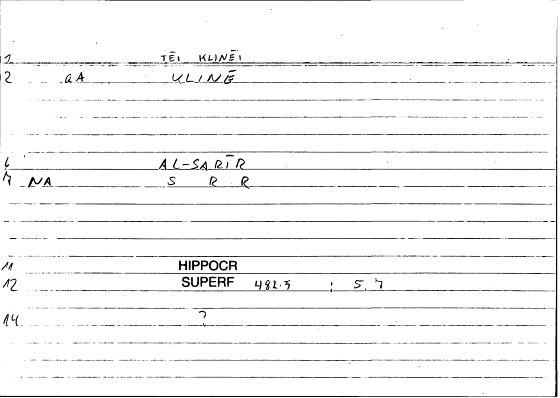 1 TĒI KLINĒI
2 aA KLINĒ
6 AL-SARĪR
7 NA S R R
11 HIPPOCR
12 SUPERF 482.5 ; 5.7
14 ?